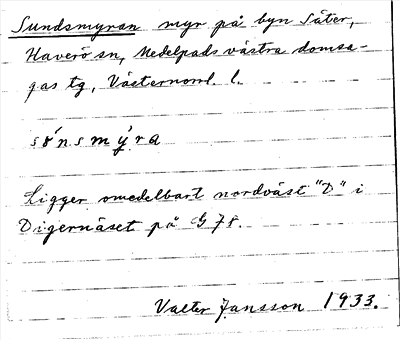 Sundsmyran myr på byn Säter,
Haverö sn, Medelpads västra domsa-
gas tg, Västernorrl. l.
súnsmỳra
Ligger omedelbart nordväst "D" i
Digernäset på G 7f.
Valter Jansson 1933.